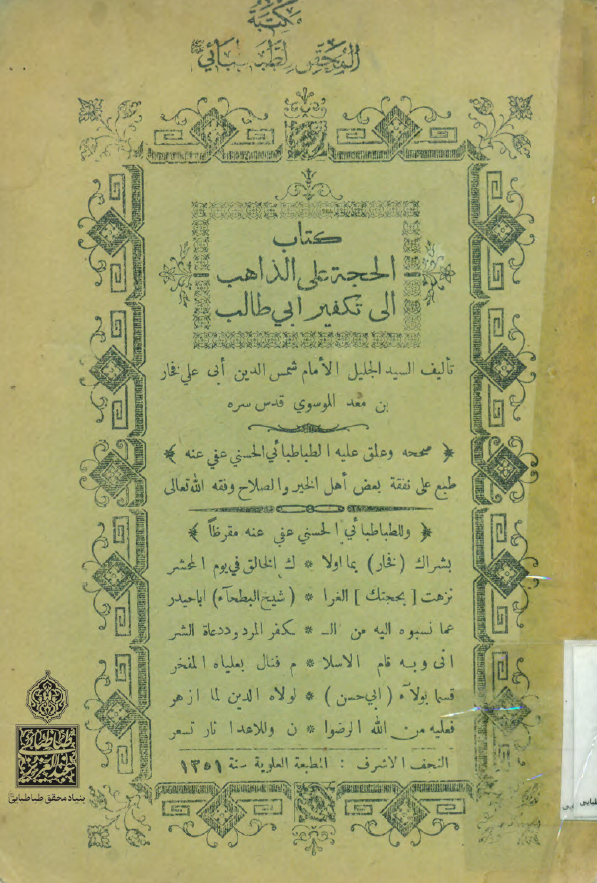 مكتبة
المحقق الطباطبائي
كتاب
الحجة على الذاهب
الى تكفير ابي طالب
تأليف السيد الجليل الأمام شمس الدين أبى علي فخار
بن معد الموسوي قدس سره
﴿ صححه وعلق عليه الطباطبائي الحسني عفي عنه ﴾
طبع على نفقة بعض أهل الخير والصلاح وفقه الله تعالى
﴿ وللطباطبائي الحسني عفي عنه مقرظاً ﴾
بشراك (فخار) بما اولا * ك الخالق في يوم المحشر
نزهت [بحجتك] الغرا * (شيخ البطحاء) اباحيدر
عما نسبوه اليه من الـ * ـكفر المردود دعاة الشر
انى وبه قام الاسلا * م فنال بعلياه المفخر
قسما بولاء (ابي حسن) * لولاه الدين لما ازهر
فعليه من الله الرضوا * ن وللاعدا نار تسعر
النجف الاشرف : المطبعة العلوية سنة ١٣٥١
بنياد محقق طباطبايى
طبايى